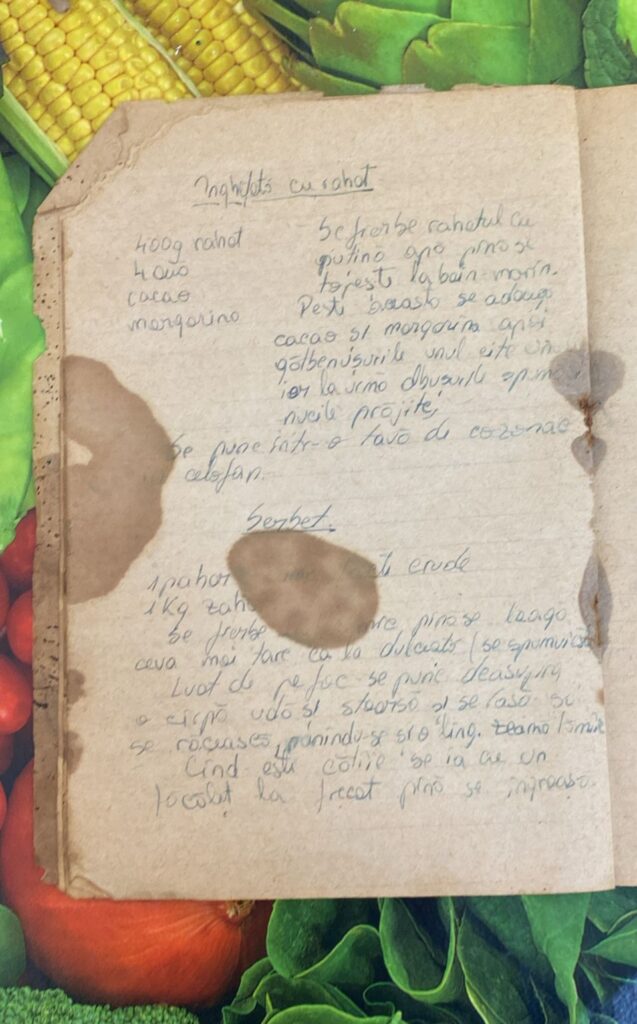 Înghețată cu rahat
400g rahat
4 ouă
cacao
margarina
Se fierbe rahatul cu
puțină apă pînă se
topește la bain-marin.
Peste aceasta se adaugă
cacao și margarina apoi
gălbenușurile unul cîte un
iar la urmă albușurile spumă
nucile prăjite,
Se pune într-o tavă de cozonac
celofan.
Serbet.
1 pahar crude
1 Kg zah
Se fierbe pînă se leagă
ceva mai tare ca la dulceață (se spumuiește
Luat de pe foc se pune deasupra
o cîrpă udă și stoarsă și se lasă să
se răcească, punîndu-se și o ling. zeamă lămîie
Cînd este căldie se ia cu un
făcăleț la frecat pînă se îngroașă.